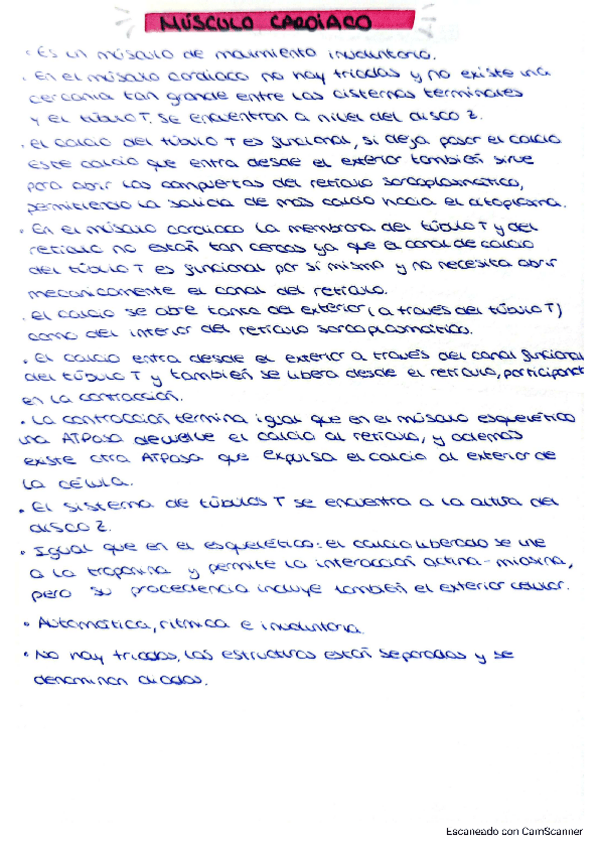 MÚSCULO CARDÍACO
· Es un músculo de movimiento involuntario.
· En el músculo cardiaco no hay triadas y no existe una
cercania tan grande entre las cisternas terminales
y el túbulo T. Se encuentran a nivel del disco Z.
· El calcio del túbulo T es funcional, si deja pasar el calcio
Este calcio que entra desde el exterior también sirve
para abrir las compuertas del retículo sarcoplasmático,
permitiendo la salida de más calcio hacia el citoplasma.
· En el músculo cardiaco la membrana del túbulo T y del
retículo no están tan cercas ya que el canal de calcio
del túbulo T es funcional por sí mismo y no necesita abrir
mecanicamente el canal del retículo.
· El calcio se abre tanto del exterior (a través del túbulo T)
como del interior del retículo sarcoplasmático.
· El calcio entra desde el exterior a través del canal funcional
del túbulo T y también se libera desde el retículo, participando
en la contracción.
· La contracción termina igual que en el músculo esquelético
una ATPasa devuelve el calcio al retículo, y además
existe otra ATPasa que expulsa el calcio al exterior de
la célula.
· El sistema de túbulos T se encuentra a la altura del
disco Z.
· Igual que en el esquelético: el calcio liberado se une
a la troponina y permite la interacción actina-miosina,
pero su procedencia incluye también el exterior celular.
· Automática, rítmica e involuntaria.
· No hay triadas, las estructuras están separadas y se
denominan diadas.
Escaneado con CamScanner